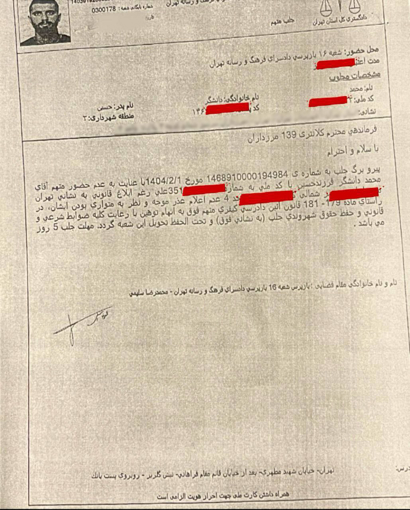 دادگستری کل استان تهران
جلب متهم
شماره بایگانی شعبه: 0300178
محل حضور: شعبه ۱۶ بازپرسی دادسرای فرهنگ و رسانه تهران
مشخصات مجلوب
نام: محمد
نام خانوادگی: دانشگر
نام پدر: حسن
کد ملی:
منطقه شهرداری: ۲
نشانی:
فرماندهی محترم کلانتری 139 مرزداران
با سلام و احترام
پیرو برگ جلب به شماره ی 1468910000194984 مورخ 1404/2/1 با عنایت به عدم حضور متهم آقای
محمد دانشگر فرزند حسین با کد ملی به شماره 351 علی رغم ابلاغ قانونی به نشانی تهران
شمالی 4 عدم اعلام عذر موجه و نظر به متواری بودن ایشان، در
راستای ماده 179 - 181 قانون آئین دادرسی کیفری متهم فوق به اتهام توهین با رعایت کلیه ضوابط شرعی و
قانونی و حفظ حقوق شهروندی جلب (به نشانی فوق) و تحت الحفظ تحویل این شعبه گردد. مهلت جلب 5 روز
می باشد.
نام و نام خانوادگی مقام قضایی: بازپرس شعبه 16 بازپرسی دادسرای فرهنگ و رسانه تهران - محمدرضا سلیمی
تهران- خیابان شهید مطهری- بعد از خیابان قائم مقام فراهانی- نبش گلریز - روبروی پست بانک
همراه داشتن کارت ملی جهت احراز هویت الزامی است